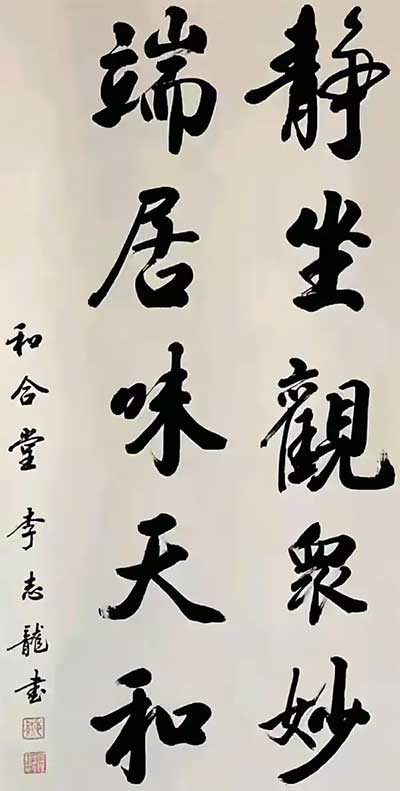 静坐觀衆妙
端居味天和
和合堂李志龍书